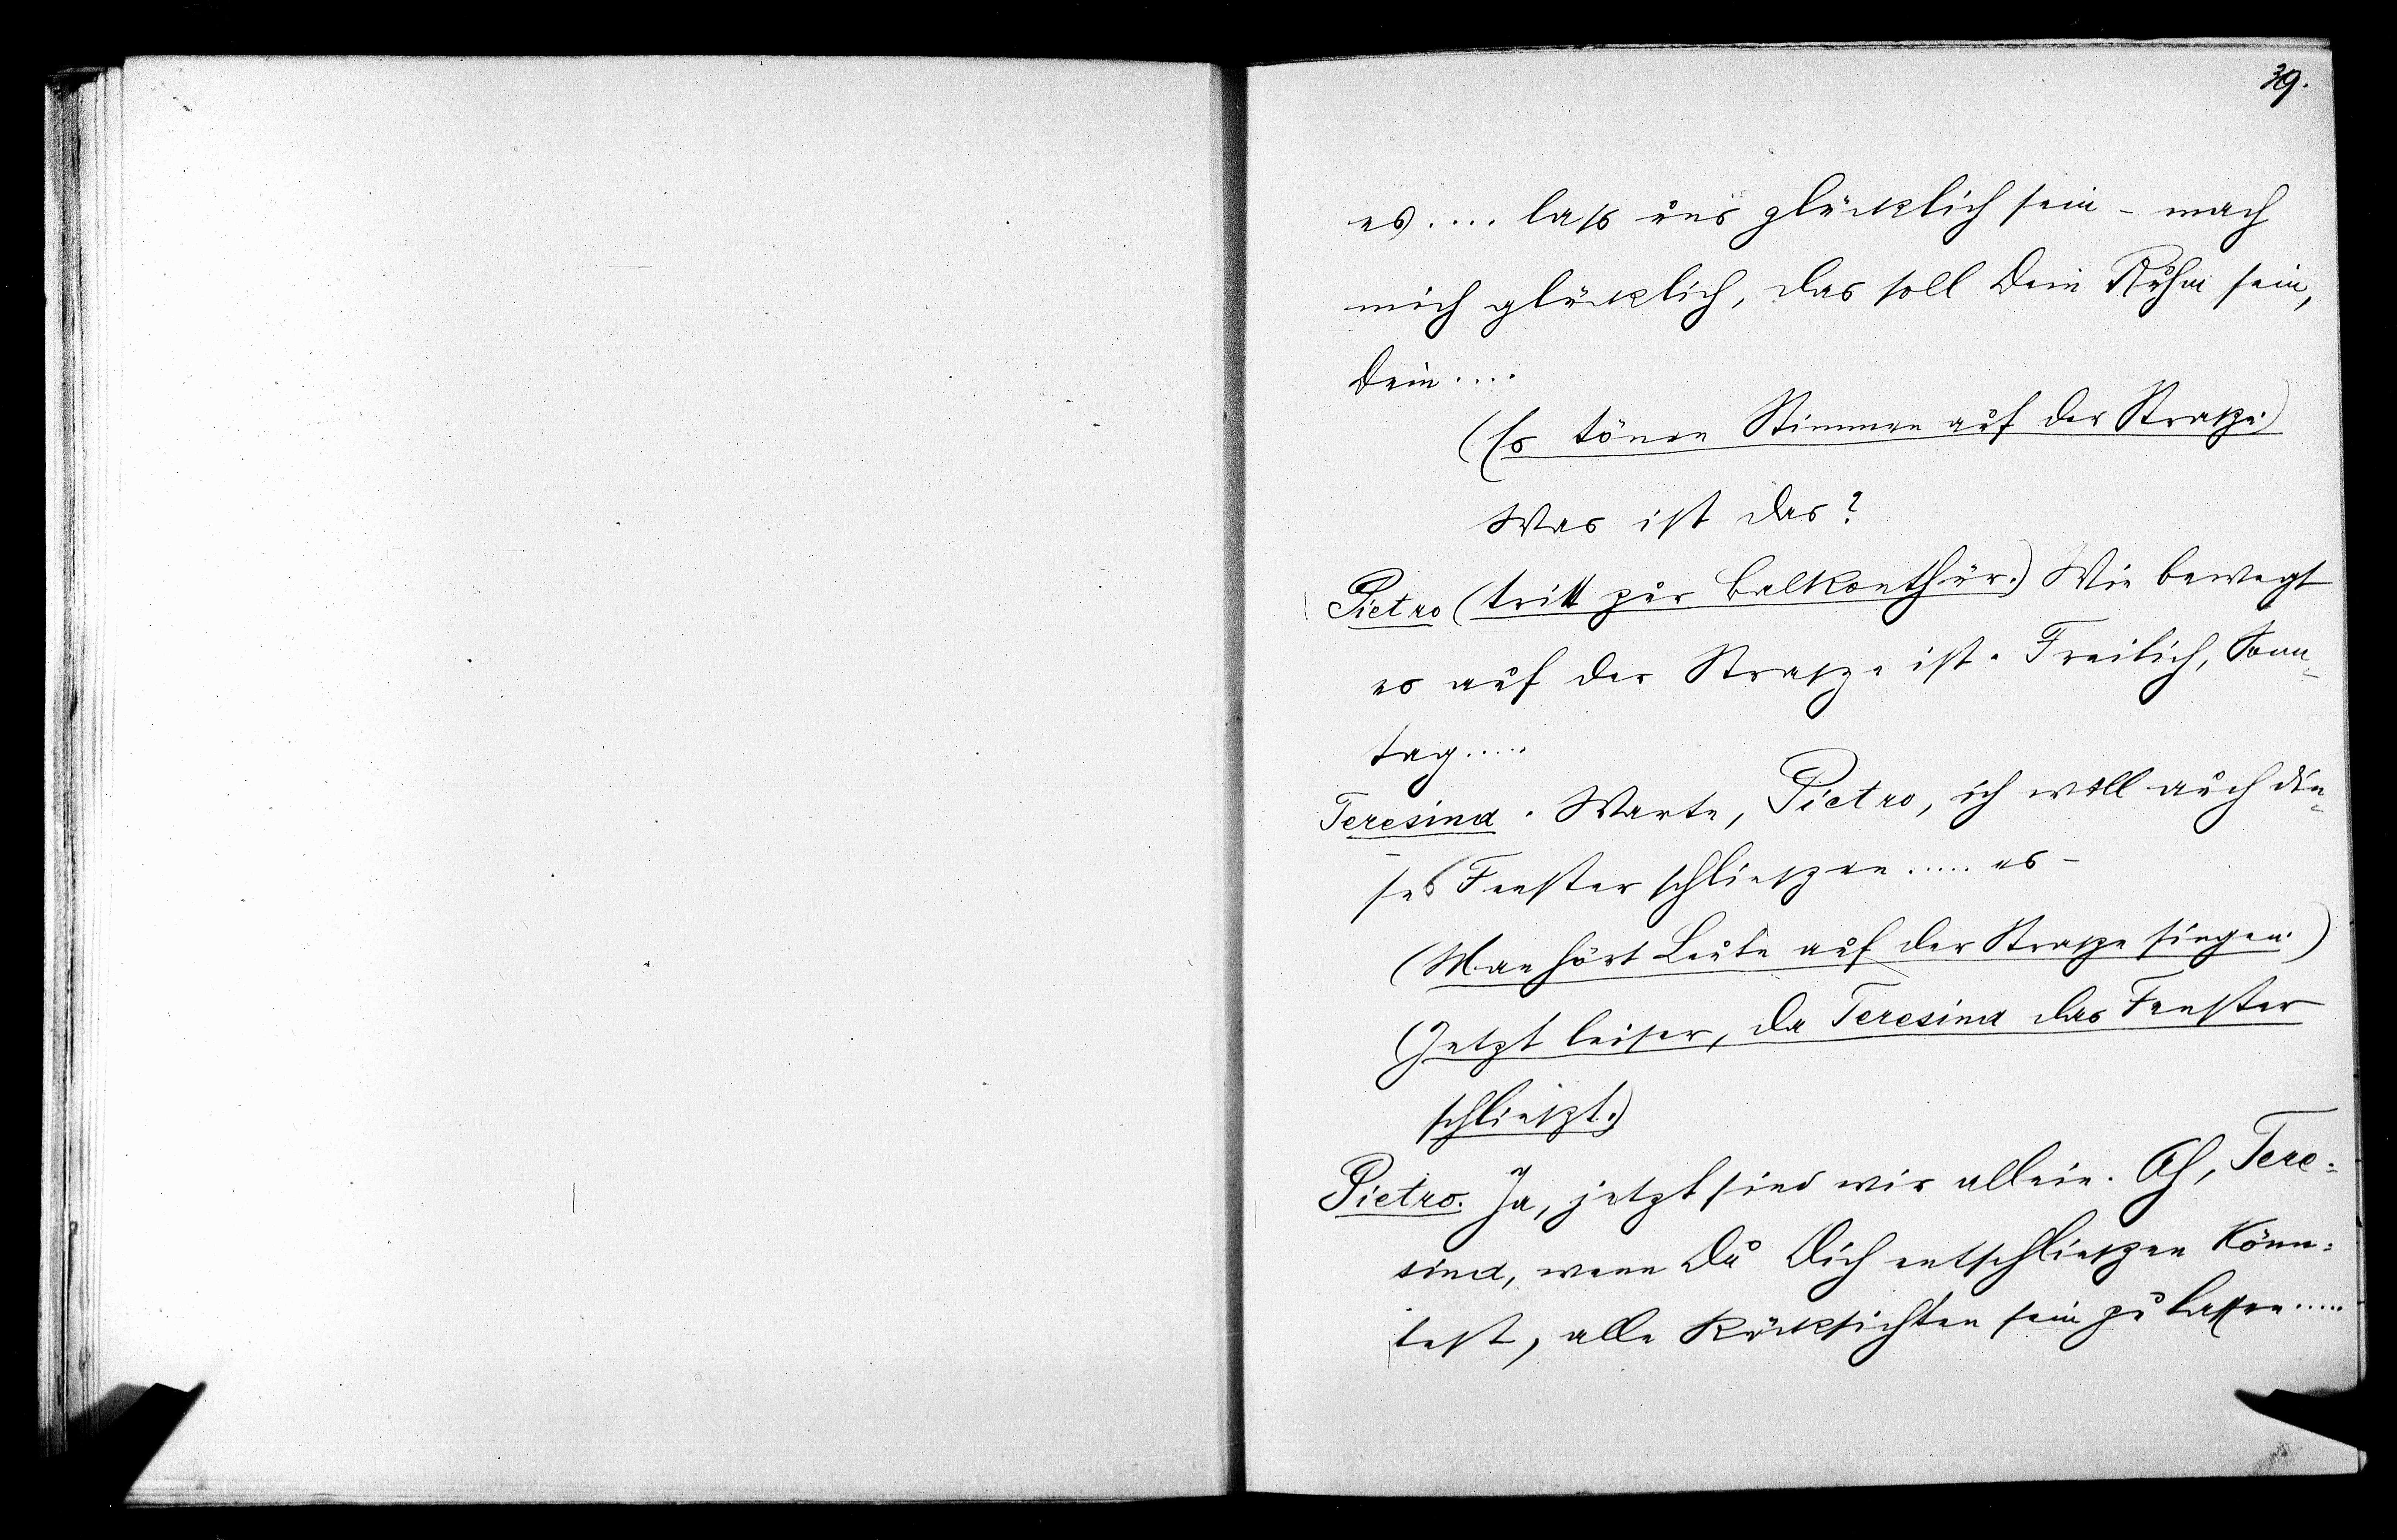 39.
es .... laß uns glücklich sein – mach
mich glücklich, das soll Dein Ruhm sein,
Dein ....
(Es tönen Stimmen auf der Straße.)
Was ist das?
Pietro (tritt zur Balkonthür.) Wie bewegt
es auf der Straße ist. Freilich, Sonn-
tag .....
Teresina. Warte, Pietro, ich will auch die-
ses Fenster schließen ..... es –
(Man hört Leute auf der Straße singen.)
(Jetzt leiser, da Teresina das Fenster
schließt.)
Pietro. Ja, jetzt sind wir allein. Ah, Tere-
sina, wenn Du Dich entschließen könn-
test, alle Rücksichten sein zu lassen .....